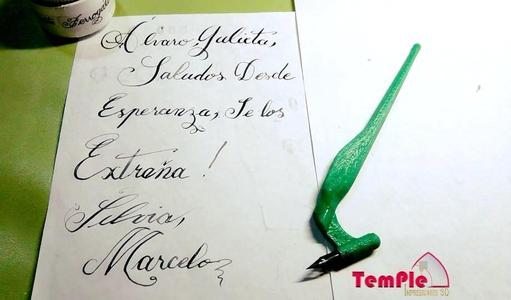 Álvaro, Julieta,
Saludos Desde
Esperanza, Se los
Extraña !
Silvia,
Marcelo
TemPle
Impresiones 3D